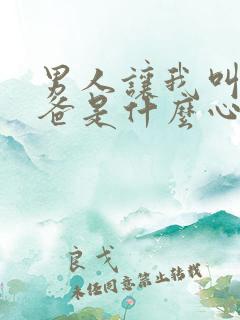 男人讓我叫
爸是什麼心
良戈
未经同意禁止转载